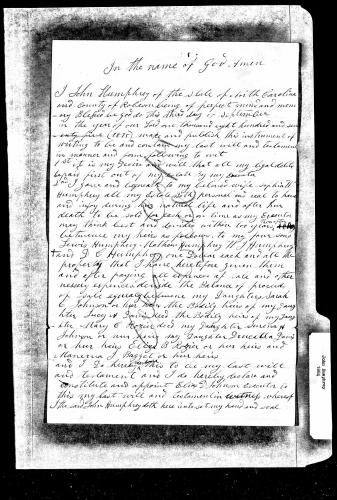 In the name of God Amen
I John Humphrey of the state of North Carolina
and county of Robeson being of perfect mind and mem
ory Blessed be God do this third day of September
in the year of our Lord one thousand eight hundred and
(1875) made and publish this instrument of
writing to be and contain my last will and testament
in manner and form following to wit
1st it is my Desire and will that all my legal debts
be paid first out of my estate by my
2nd I gave and bequeath to my beloved wife
Humphrey all my estate both personal and real to have
and injoy during her natural life and after her
death to be sold for cash or on time as my Executor
may think best and devided within two years
between my heirs as follows to my four sons
Lewis Humphrey Nathan Humphrey W J Humphrey
and J C Humphrey one Dollar each and all the
property that I have heretofore given them
and after paying all expenses of sale and other
necessary expences devide the Balance of proceeds
of Sale equal between my Daughters Sarah
C Johnson or her heirs the Bodily heirs of my Daug
hter Lucy A Davis decd the Bodily heirs of my Daug
hter Mary C Rozier decd my Daughter
Johnson or her heirs my Daughter Drucilla Davis
or her heirs Rozier or her heirs and
Manerva J Baggett or her heirs
and I Do hereby this to be my last will
and testament and I do hereby declare and
constitute and appoint Elias D Johnson executor to
this my last will and testament in witness whereof
I the said John Humphrey doth here unto set my hand and seal
John Humphrey